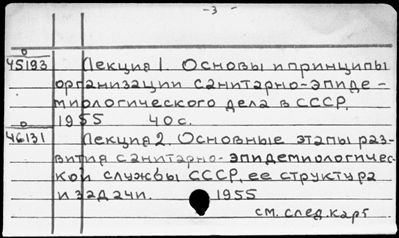 - 3 -
0
45193 Лекция 1. Основы и принципы
организации санитарно-эпиде-
миологического дела в СССР.
1955 40 с.
0
46131 Лекция 2. Основные этапы раз-
вития санитарно-эпидемиологичес-
кой службы СССР, ее структура
и задачи. 1955
см. след. карт